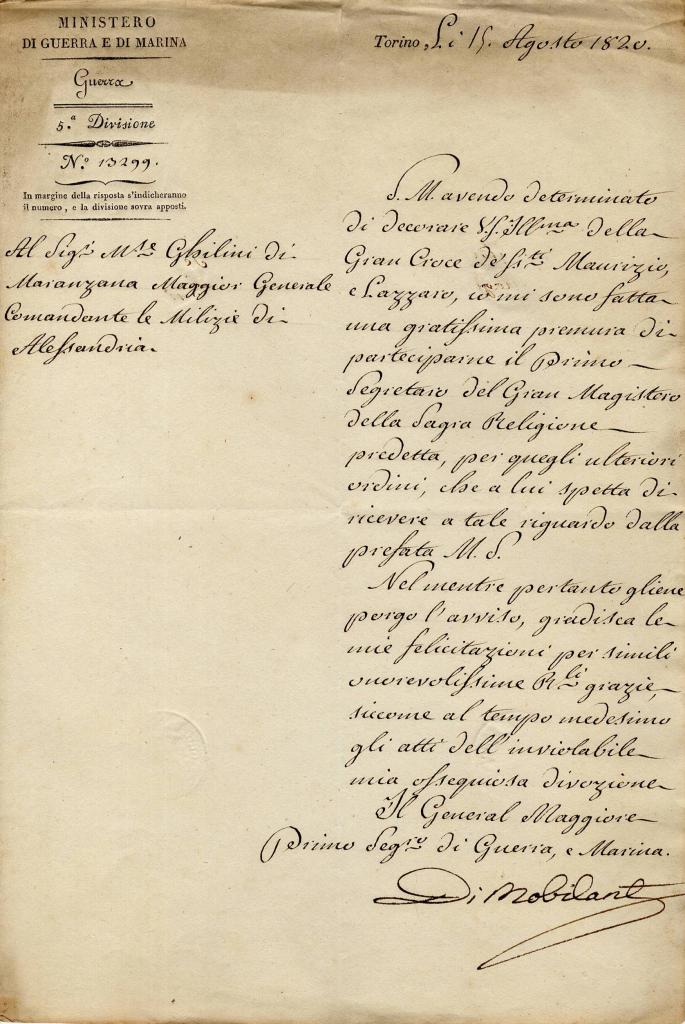 MINISTERO
DI GUERRA E DI MARINA
Guerra
5.ª Divisione
N.º 13299.
In margine della risposta s'indicheranno
il numero, e la divisione sovra apposti.
Torino, Li 15. Agosto 1820.
Al Sig.r M.se Ghilini di
Maranzana Maggior Generale
Comandante le Milizie di
Alessandria.
S. M. avendo determinato
di decorare V. S. Ill.ma della
Gran Croce de' S.ti Maurizio,
e Lazzaro, io mi sono fatta
una gratissima premura di
parteciparne il Primo
Segretaro del Gran Magistero
della Sagra Religione
predetta, per quegli ulteriori
ordini, che a lui spetta di
ricevere a tale riguardo dalla
prefata M. S.
Nel mentre pertanto gliene
porgo l'avviso, gradisca le
mie felicitazioni per simili
onorevolissime R.li grazie,
siccome al tempo medesimo
gli atti dell'inviolabile
mia ossequiosa divozione
Il General Maggiore
Primo Seg.ro di Guerra, e Marina.
Di Nobilant